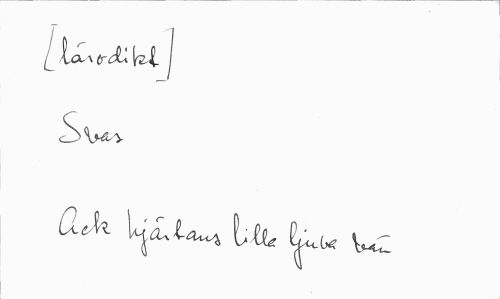 [lärodikt]
Svas
Ack hjärtans lilla ljuva vän